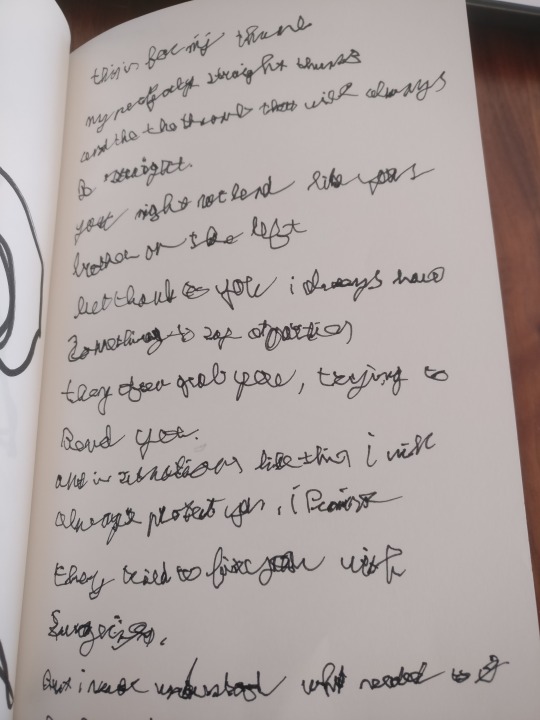 this is for my thumb
my perfectly straight thumb
and the the thumb that will always
be straight.
you might not bend like your
brother on the left
but thank to you i always have
something to say at parties
they often grab you, trying to
bend you.
and in situations like this i will
always protect you, i promise
they tried to fix you with
surgeries.
But i never understood what needed to